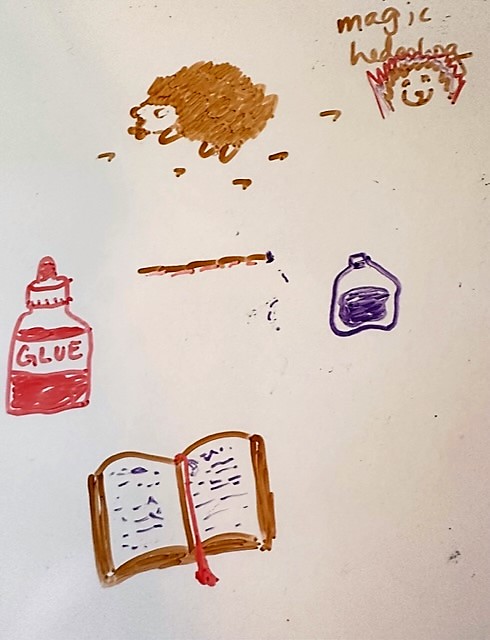 magic
hedgehog
GLUE